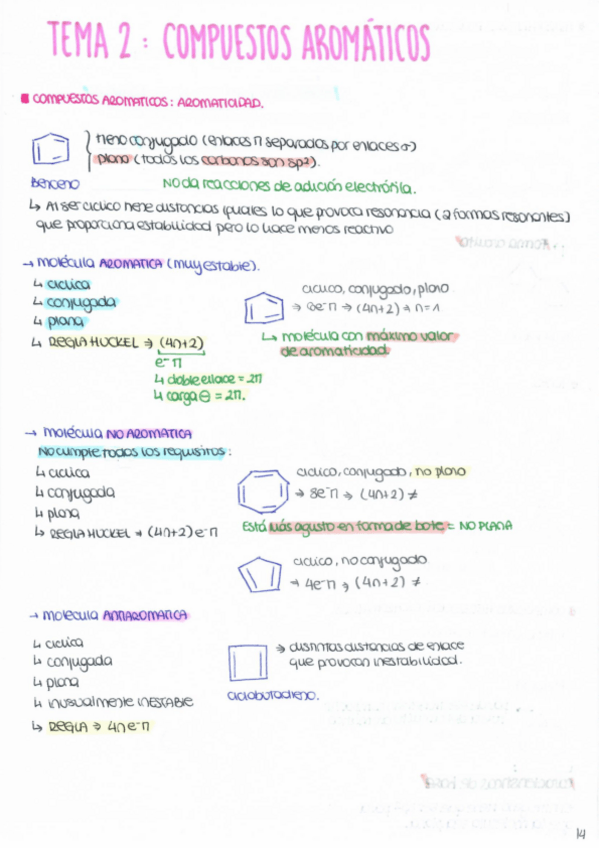 TEMA 2 : COMPUESTOS AROMÁTICOS
COMPUESTOS AROMATICOS : AROMATICIDAD.
tieno conjugado (enlaces π separados por enlaces σ)
plano (todos los carbonos son sp²).
Benceno
No da reacciones de adición electrófila.
↳ Al ser cíclico tiene distancias iguales lo que provoca resonancia (2 formas resonantes)
que proporciona estabilidad pero lo hace menos reactivo
→ molécula AROMATICA (muy estable).
↳ cíclica
↳ conjugada
↳ plana
↳ REGLA HUCKEL ⇒ (4n+2)
e⁻π
↳ doble enlace = 2π
↳ carga ⊖ = 2π.
cíclico, conjugado, plano
→ 6e⁻π → (4n+2) → n=1
↳ molécula con máximo valor
de aromaticidad.
→ molécula NO AROMATICA
No cumple todos los requisitos :
↳ cíclica
↳ conjugada
↳ plana
↳ REGLA HUCKEL → (4n+2) e⁻π
cíclico, conjugado, no plano
→ 8e⁻π → (4n+2) ≠
Está más agusto en forma de bote = NO PLANA
cíclico, no conjugado
→ 4e⁻π → (4n+2) ≠
→ molécula ANTIAROMATICA
↳ cíclica
↳ conjugada
↳ plana
↳ inusualmente INESTABLE
↳ REGLA ⇒ 4n e⁻π
→ distintas distancias de enlace
que provocan inestabilidad.
ciclobutadieno.
14